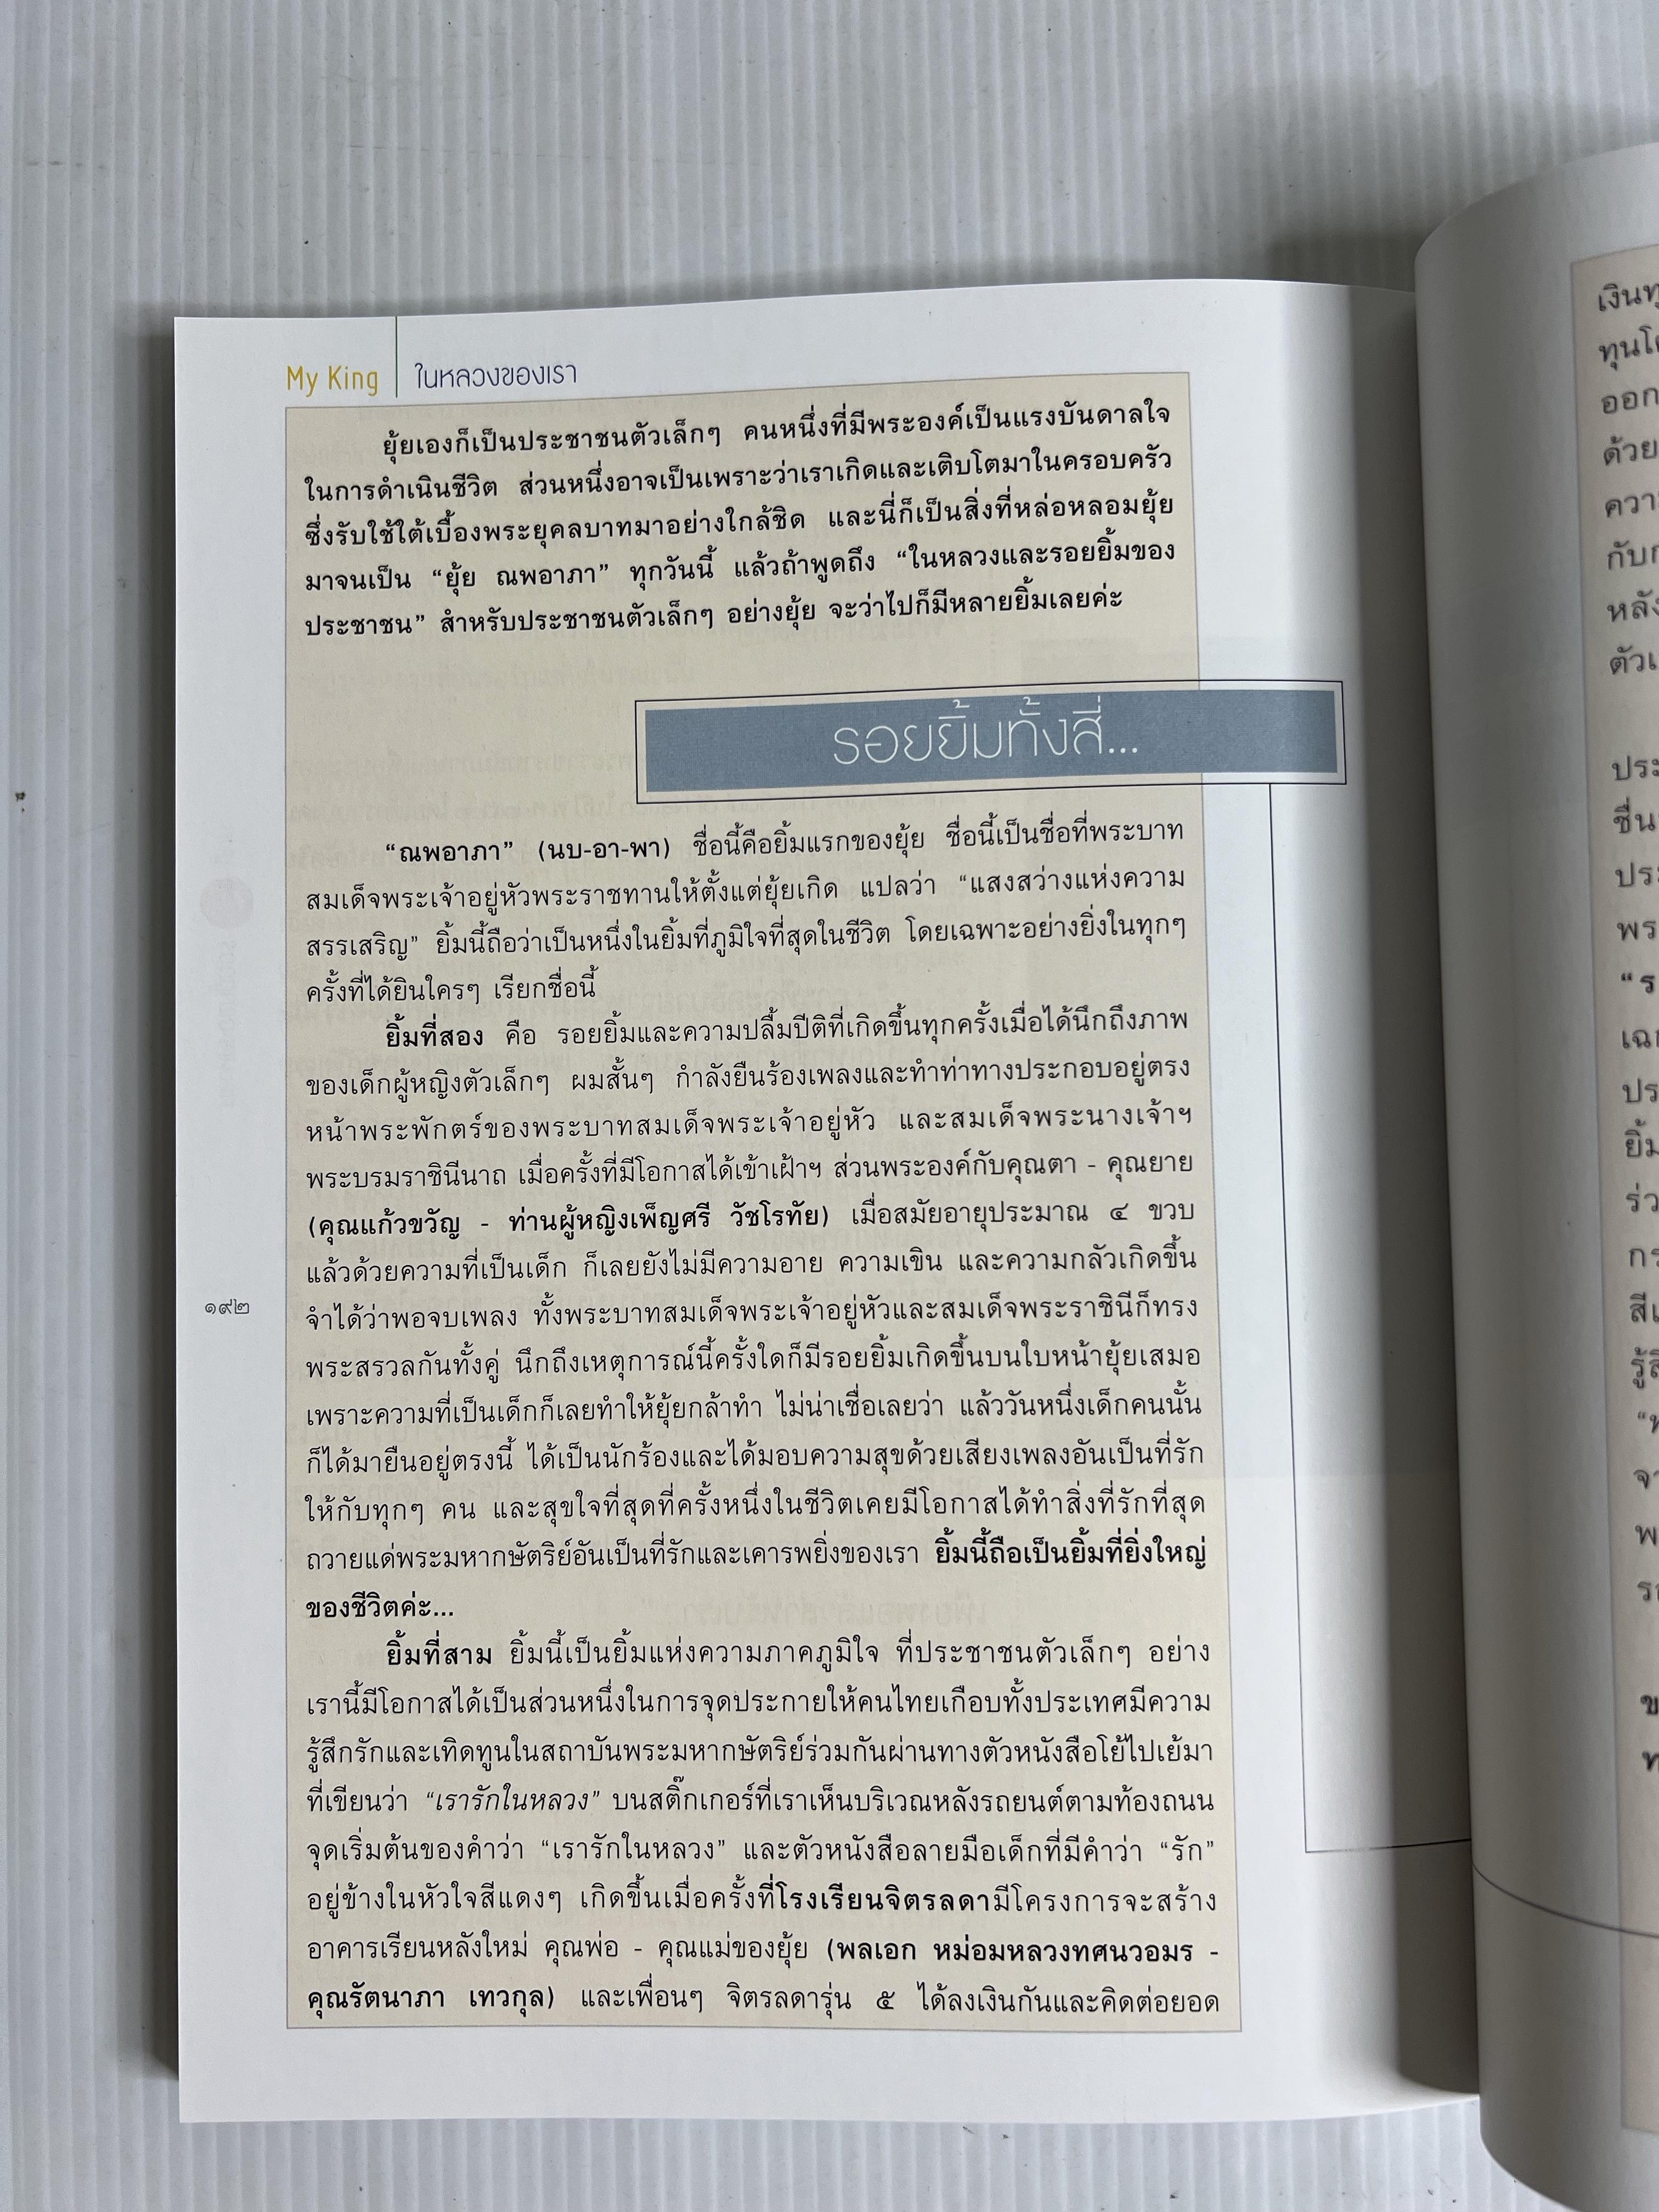 My King | ในหลวงของเรา
ยุ้ยเองก็เป็นประชาชนตัวเล็กๆ คนหนึ่งที่มีพระองค์เป็นแรงบันดาลใจ
ในการดำเนินชีวิต ส่วนหนึ่งอาจเป็นเพราะว่าเราเกิดและเติบโตมาในครอบครัว
ซึ่งรับใช้ใต้เบื้องพระยุคลบาทมาอย่างใกล้ชิด และนี่ก็เป็นสิ่งที่หล่อหลอมยุ้ย
มาจนเป็น “ยุ้ย ณพอาภา” ทุกวันนี้ แล้วถ้าพูดถึง “ในหลวงและรอยยิ้มของ
ประชาชน” สำหรับประชาชนตัวเล็กๆ อย่างยุ้ย จะว่าไปก็มีหลายยิ้มเลยค่ะ
รอยยิ้มทั้งสี่...
“ณพอาภา” (นบ-อา-พา) ชื่อนี้คือยิ้มแรกของยุ้ย ชื่อนี้เป็นชื่อที่พระบาท
สมเด็จพระเจ้าอยู่หัวพระราชทานให้ตั้งแต่ยุ้ยเกิด แปลว่า “แสงสว่างแห่งความ
สรรเสริญ” ยิ้มนี้ถือว่าเป็นหนึ่งในยิ้มที่ภูมิใจที่สุดในชีวิต โดยเฉพาะอย่างยิ่งในทุกๆ
ครั้งที่ได้ยินใครๆ เรียกชื่อนี้
ยิ้มที่สอง คือ รอยยิ้มและความปลื้มปีติที่เกิดขึ้นทุกครั้งเมื่อได้นึกถึงภาพ
ของเด็กผู้หญิงตัวเล็กๆ ผมสั้นๆ กำลังยืนร้องเพลงและทำท่าทางประกอบอยู่ตรง
หน้าพระพักตร์ของพระบาทสมเด็จพระเจ้าอยู่หัว และสมเด็จพระนางเจ้าฯ
พระบรมราชินีนาถ เมื่อครั้งที่มีโอกาสได้เข้าเฝ้าฯ ส่วนพระองค์กับคุณตา - คุณยาย
(คุณแก้วขวัญ - ท่านผู้หญิงเพ็ญศรี วัชโรทัย) เมื่อสมัยอายุประมาณ ๔ ขวบ
แล้วด้วยความที่เป็นเด็ก ก็เลยยังไม่มีความอาย ความเขิน และความกลัวเกิดขึ้น
จำได้ว่าพอจบเพลง ทั้งพระบาทสมเด็จพระเจ้าอยู่หัวและสมเด็จพระราชินีก็ทรง
พระสรวลกันทั้งคู่ นึกถึงเหตุการณ์นี้ครั้งใดก็มีรอยยิ้มเกิดขึ้นบนใบหน้ายุ้ยเสมอ
เพราะความที่เป็นเด็กก็เลยทำให้ยุ้ยกล้าทำ ไม่น่าเชื่อเลยว่า แล้ววันหนึ่งเด็กคนนั้น
ก็ได้มายืนอยู่ตรงนี้ ได้เป็นนักร้องและได้มอบความสุขด้วยเสียงเพลงอันเป็นที่รัก
ให้กับทุกๆ คน และสุขใจที่สุดที่ครั้งหนึ่งในชีวิตเคยมีโอกาสได้ทำสิ่งที่รักที่สุด
ถวายแด่พระมหากษัตริย์อันเป็นที่รักและเคารพยิ่งของเรา ยิ้มนี้ถือเป็นยิ้มที่ยิ่งใหญ่
ของชีวิตค่ะ...
ยิ้มที่สาม ยิ้มนี้เป็นยิ้มแห่งความภาคภูมิใจ ที่ประชาชนตัวเล็กๆ อย่าง
เรานี้มีโอกาสได้เป็นส่วนหนึ่งในการจุดประกายให้คนไทยเกือบทั้งประเทศมีความ
รู้สึกรักและเทิดทูนในสถาบันพระมหากษัตริย์ร่วมกันผ่านทางตัวหนังสือโย้ไปเย้มา
ที่เขียนว่า “เรารักในหลวง” บนสติ๊กเกอร์ที่เราเห็นบริเวณหลังรถยนต์ตามท้องถนน
จุดเริ่มต้นของคำว่า “เรารักในหลวง” และตัวหนังสือลายมือเด็กที่มีคำว่า “รัก”
อยู่ข้างในหัวใจสีแดงๆ เกิดขึ้นเมื่อครั้งที่โรงเรียนจิตรลดามีโครงการจะสร้าง
อาคารเรียนหลังใหม่ คุณพ่อ - คุณแม่ของยุ้ย (พลเอก หม่อมหลวงทศนวอมร -
คุณรัตนาภา เทวกุล) และเพื่อนๆ จิตรลดารุ่น ๕ ได้ลงเงินกันและคิดต่อยอด
๑๙๒